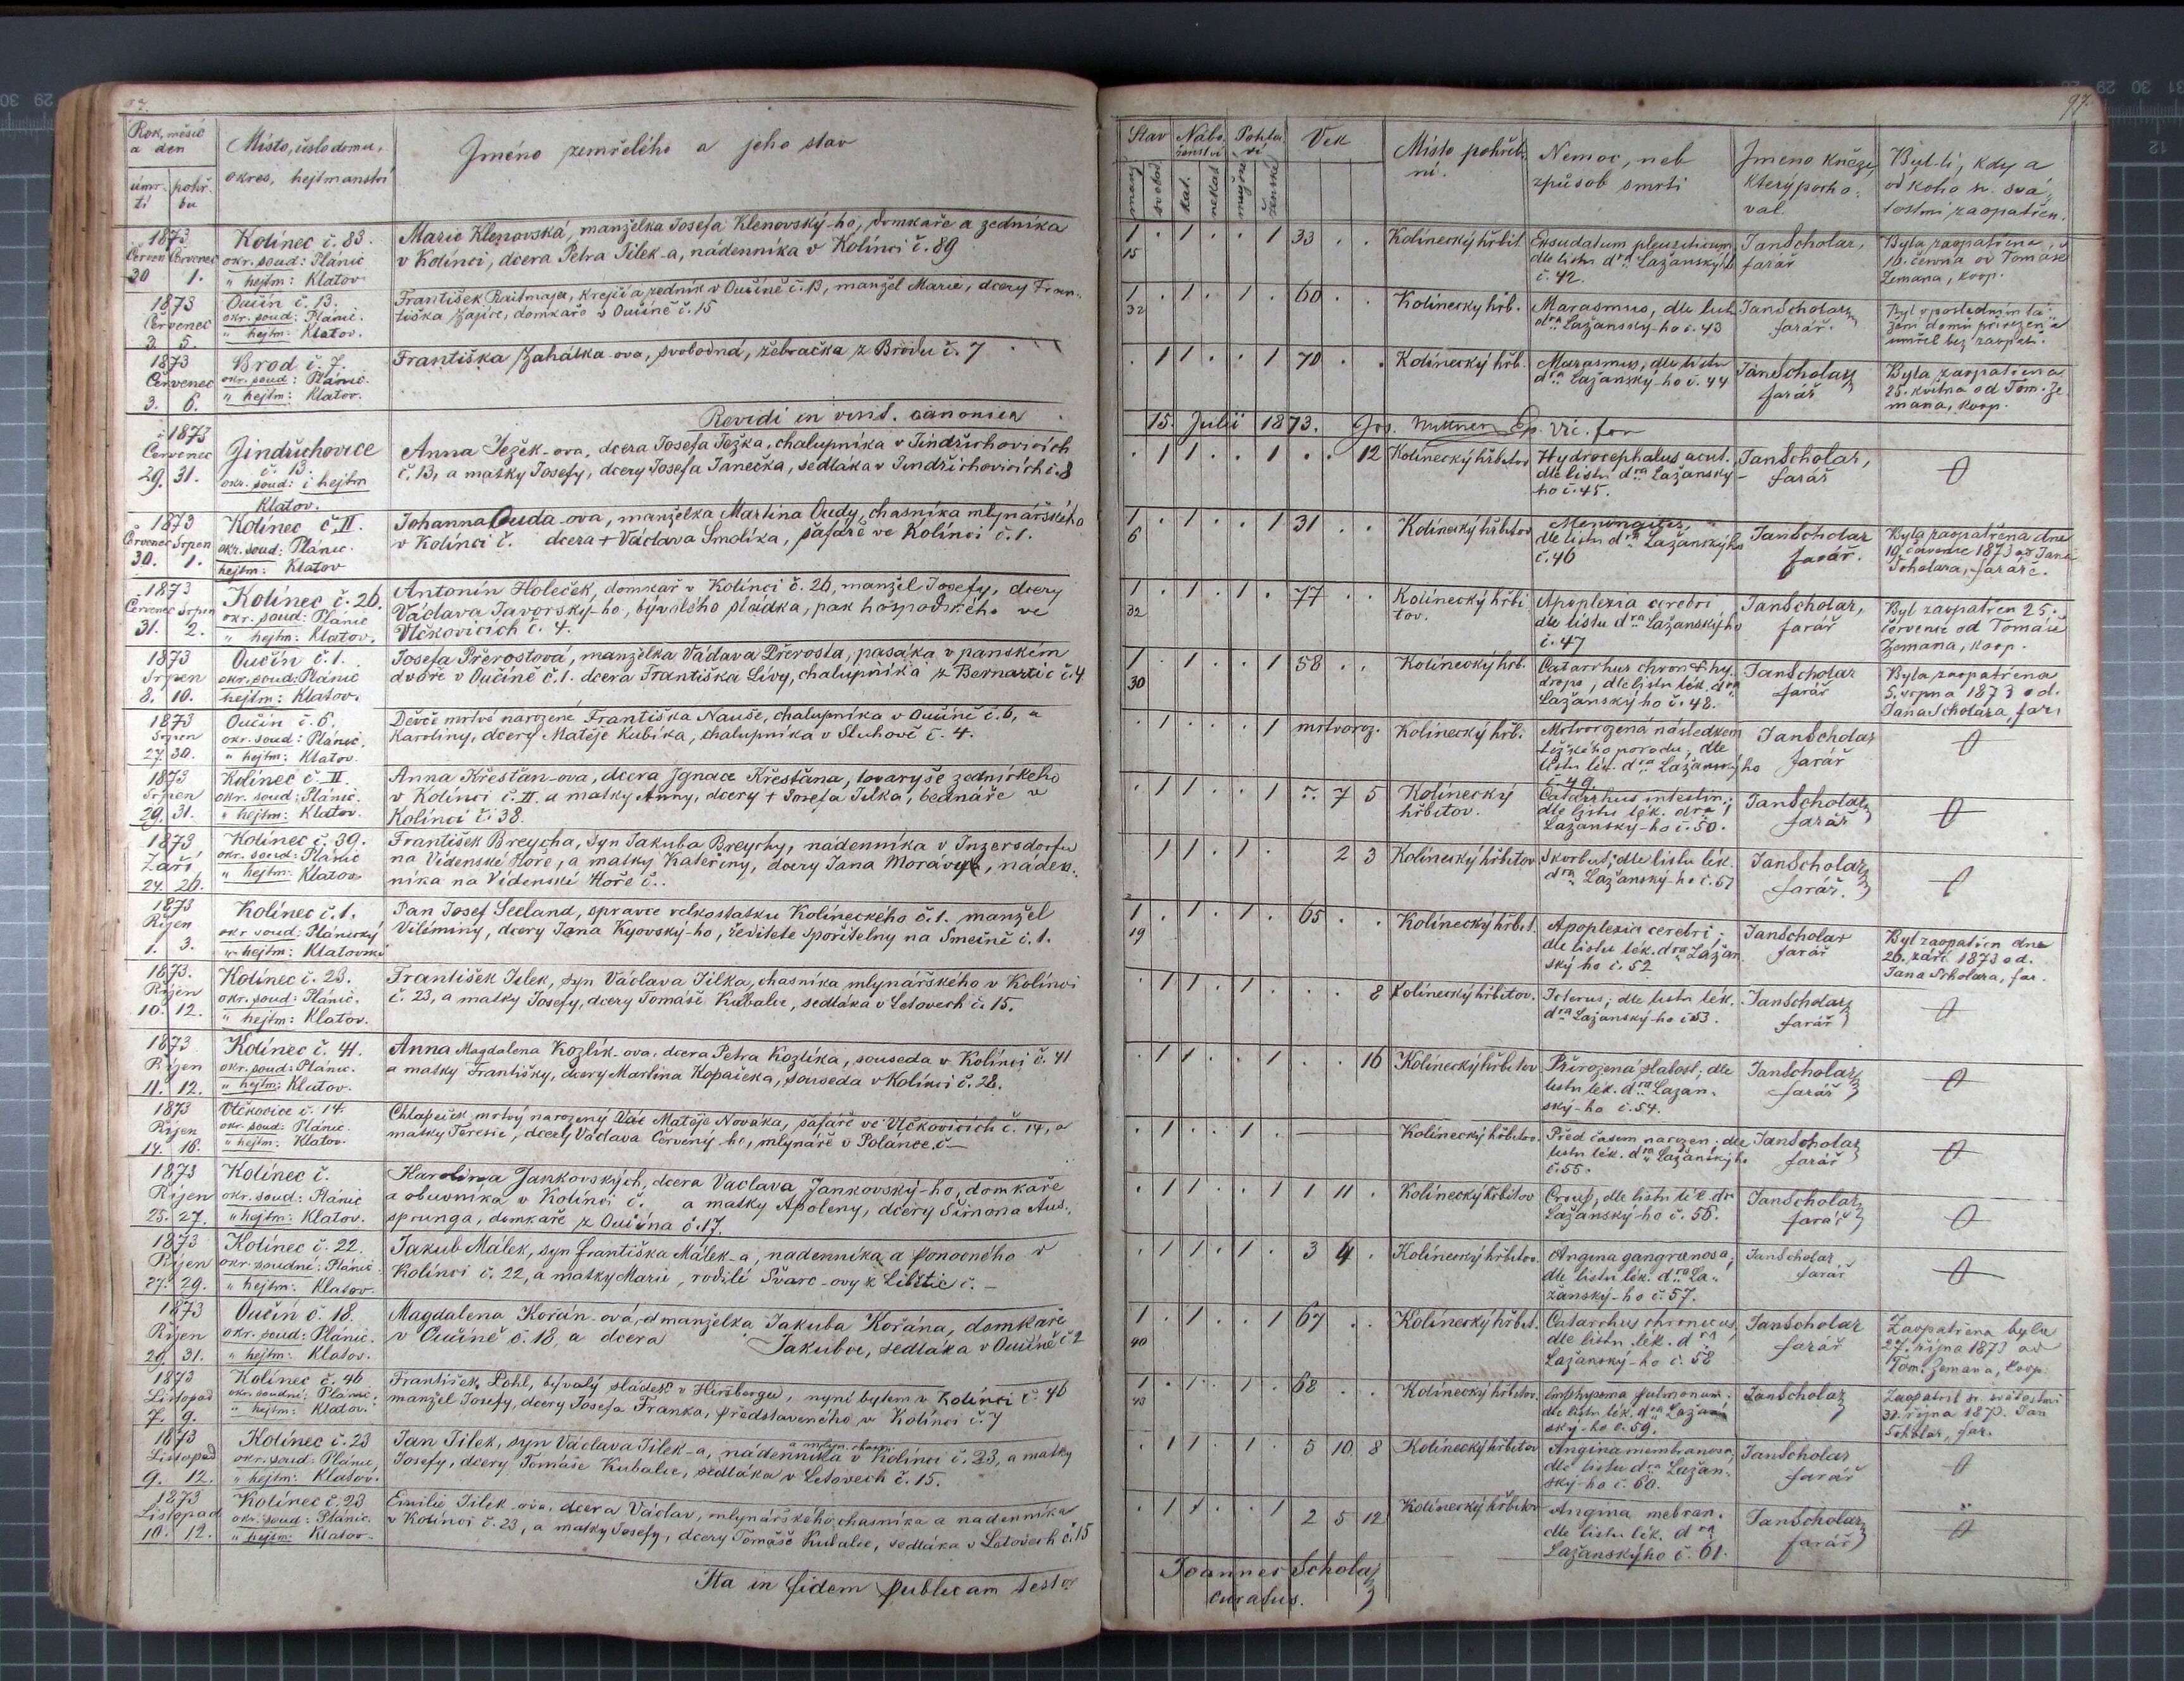 97.
Rok, měsíc
a den
úmr-
tí
pohř.
bu
Místo, číslo domu,
okres, hejtmanství
Jméno zemřelého a jeho stav
1873
Červen Červenec
30 1.
Kolinec č. 83.
okr. soud: Plánic
" hejtm: Klatov
Marie Klenovská, manželka Josefa Klenovský-ho, domkaře a zedníka
v Kolinci, dcera Petra Jílek-a, nádenníka v Kolinci č. 89
1873
Červenec
3. 5.
Oučín č. 13.
okr. soud: Plánic.
" hejtm: Klatov.
František Raitmajer, krejčí a zedník v Oučíně č. 13, manžel Marie, dcery Fran-
tiška Zajíce, domkaře v Oučíně č. 15
1873
Červenec
3. 6.
Brod č. 7.
okr. soud: Plánic.
" hejtm: Klatov.
Františka Zahálka-ova, svobodná, žebračka z Brodu č. 7
Revidi in visit. canonica
1873
Červenec
29. 31.
Jindřichovice
č. 13.
okr. soud: i hejtm
Klatov.
Anna Ježek-ova, dcera Josefa Ježka, chalupníka v Jindřichovicích
č. 13, a matky Josefy, dcery Josefa Janečka, sedláka v Jindřichovicích č. 8
1873
Červenec Srpen
30. 1.
Kolinec č. II.
okr. soud: Plánic.
hejtm: Klatov
Johanna Ouda-ova, manželka Martina Oudy, chasníka mlynářského
v Kolinci č. dcera + Václava Smolíka, šafáře ve Kolinci č. 1.
1873
Červenec Srpen
31. 2.
Kolinec č. 26.
okr. soud: Plánic
" hejtm: Klatov.
Antonín Holeček, domkař v Kolinci č. 26, manžel Josefy, dcery
Václava Javorský-ho, bývalého sládka, pak hospodského ve
Vlčkovicích č. 4.
1873
Srpen
8. 10.
Oučín č. 1.
okr. soud: Plánic
hejtm: Klatov.
Josefa Přerostová, manželka Václava Přerosta, pasáka v panském
dvoře v Oučíně č. 1. dcera Františka Lívy, chalupníka z Bernartic č. 4
1873
Srpen
27. 30.
Oučín č. 6.
okr. soud: Plánic.
" hejtm: Klatov
Děvče mrtvě narozené Františka Nauše, chalupníka v Oučíně č. 6, a
Karoliny, dcery Matěje Kubíka, chalupníka v Sluhově č. 4.
1873
Srpen
29. 31.
Kolinec č. II
okr. soud: Plánic.
" hejtm: Klatov.
Anna Křesťan-ova, dcera Ignace Křesťana, tovaryše zednického
v Kolinci č. II. a matky Anny, dcery + Josefa Jílka, bednáře v
Kolinci č. 38.
1873
Září
24. 26.
Kolinec č. 39.
okr. soud: Plánic
" hejtm: Klatov
František Breycha, syn Jakuba Breychy, nádenníka v Inzersdorfu
na Vídenské Hoře, a matky Kateřiny, dcery Jana , náden-
níka na Vídenské Hoře č..
1873
Říjen
1. 3.
Kolinec č. 1.
okr soud: Plánický
" hejtm: Klatovské
Pan Josef Seeland, správce velkostatku Kolineckého č. 1. manžel
Vilíminy, dcery Jana Kyovský-ho, ředitele spořitelny na Smečně č. 1.
1873.
Říjen
10. 12.
Kolinec č. 23.
okr. soud: Plánic.
" hejtm: Klatov.
František Jílek, syn Václava Jílka, chasníka mlynářského v Kolinci
č. 23, a matky Josefy, dcery Tomáše Kubalce, sedláka v Letovech č. 15.
1873
Říjen
11. 12.
Kolinec č. 41.
okr. soud: Plánic.
" hejtm: Klatov.
Anna Magdalena Kozlík-ova, dcera Petra Kozlíka, souseda v Kolinci č. 41
a matky Františky, dcery Martina Kopačka, souseda v Kolinci č. 28.
1873
Říjen
14. 16.
Vlčkovice č. 14.
okr. soud: Plánic.
" hejtm: Klatov.
Chlapeček mrtvý narozený Matěje Nováka, šafáře ve Vlčkovicích č. 14, a
matky Teresie, dcery Václava Červený-ho, mlynáře v Polance č —
1873
Říjen
25. 27.
Kolinec č.
okr. soud: Plánic
" hejtm: Klatov.
Karolina Jankovských, dcera Václava Jankovský-ho, domkaře
a obuvníka v Kolinci č. a matky Apoleny, dcery Šimona Aus-
sprunga, domkaře z Oučína č. 17.
1873
Říjen
27. 29.
Kolinec č. 22.
okr. soudní: Plánic
" hejtm: Klatov.
Jakub Málek, syn Františka Málek-a, nadenníka a ponocného v
Kolinci č. 22, a matky Marie, rodilé Švarc-ovy z č. —
1873
Říjen
29. 31.
Oučín č. 18.
okr. soud: Plánic.
" hejtm: Klatov.
Magdalena Kořán-ová, manželka Jakuba Kořána, domkaře
v Oučíně č. 18, a dcera Jakubce, sedláka v Oučíně č. 2
1873
Listopad
7. 9.
Kolinec č. 46
okr. soudní: Plánic.
" hejtm: Klatov.
František Pohl, bývalý sládek v Hiršbergu, nyní bytem v Kolinci č. 46
manžel Josefy, dcery Josefa Franka, představeného v Kolinci č. 7
1873
Listopad
9. 12.
Kolinec č. 23
okr. soud: Plánic,
" hejtm: Klatov.
Jan Jílek, syn Václava Jílek-a, nádenníka a mlyn. chas. v Kolinci č. 23, a matky
Josefy, dcery Tomáše Kubalce, sedláka v Letovech č. 15.
1873
Listopad
10. 12.
Kolinec č. 23
okr. soud: Plánic.
" hejtm: Klatov.
Emilie Jílek-ova, dcera Václav, mlynářského chasníka a nadenníka
v Kolinci č. 23, a matky Josefy, dcery Tomáše Kubalce, sedláka v Letovech č. 15
Ita in fidem publicam testor
97.
Stav
Nábo-
ženství
Pohla-
ví
Vek
Místo pohřeb-
ní.
Nemoc, neb
způsob smrti
Jmeno kněze,
který pocho-
val.
Byl-li, kdy a
od koho sv. svá-
tostmi zaopatřen.
manž
svobod
kat.
nekat
mužské
ženské
1 . 1 . . 1 33 . .
15
Kolinecký hřbit.
Exsudatum pleuriticum,
dle listu dra Lažanskýh
č. 42.
Jan Scholar,
farář
Byla zaopatřena,
16. června od Tomáše
Zemana, koop.
1 . 1 . 1 . 60 . .
32
Kolinecký hřb.
Marasmus, dle listu
dra Lažanský-ho č. 43
Jan Scholar
farář.
Byl v posledním ta-
žení domů přivezen a
umřel bez zaopatř.
. 1 1 . . 1 70 . .
Kolinecký hřb.
Marasmus, dle listu
dra Lažanský-ho č. 44
Jan Scholar
farář
Byla zaopatřena
25. května od Tom. Ze-
mana, koop.
15. Julii 1873. Jos. Ep. vic. for
. 1 1 . 1 . . . 12
Kolinecký hřbitov
Hydrocephalus acut.
dle listu dra Lažanský-
ho č. 45.
Jan Scholar,
farář
1 . 1 . . 1 31 . .
6
Kolinecký hřbitov
Meningitis,
dle listu dra Lažanskýho
č. 46
Jan Scholar
farář.
Byla zaopatřena dne
10. července 1873 od Jana
Scholara, faráře.
1 . 1 . 1 . 77 . .
32
Kolinecký hřbi-
tov.
Apoplexia cerebri
dle listu dra Lažanskýho
č. 47
Jan Scholar,
farář
Byl zaopatřen 25.
července od Tomáše
Zemana, koop.
1 . 1 . . 1 58 . .
30
Kolinecký hřb.
Catarrhus chron. + hy-
drops, dle listu lék. dra
Lažanskýho č. 48.
Jan Scholar
farář
Byla zaopatřena
5. srpna 1873 od.
Jana Scholara, far.
. 1 . . . 1 mrtvoroz.
Kolinecký hřb.
Mrtvorozená následkem
těžkého porodu, dle
listu lék. dra Lažanskýho
č. 49
Jan Scholar
farář
. 1 1 . . 1 . 7 5
Kolinecký
hřbitov.
Catarrhus intestin.;
dle listu lék. dra
Lažanský-ho č. 50.
Jan Scholar
farář
1 1 . 1 . 2 3
Kolinecký hřbitov
Skorbut; dle listu lék.
dra Lažanský-ho č. 51
Jan Scholar
farář.
1 . 1 . 1 . 65 . .
19
Kolinecký hřbit.
Apoplexia cerebri;
dle listu lék. dra Lažan-
ský-ho č. 52
Jan Scholar
farář
Byl zaopatřen dne
26. září 1873 od.
Jana Scholara, far.
. 1 1 . 1 . . . 8
Kolinecký hřbitov.
Icterus; dle listu lék.
dra Lažanský-ho č. 53.
Jan Scholar
farář
. 1 1 . . 1 . . 16
Kolinecký hřbitov
Přirozená slabost; dle
listu lék. dra Lažan-
ský-ho č. 54.
Jan Scholar
farář
. 1 . . 1 . —
Kolinecký hřbitov.
Před časem narozen; dle
listu lék. dra Lažanskýho
č. 55.
Jan Scholar
farář
. 1 1 . . 1 1 11 .
Kolinecký hřbitov
Croup, dle listu lék. dra
Lažanský-ho č. 56.
Jan Scholar
farář
. 1 1 . 1 . 3 4 .
Kolinecký hřbitov.
Angina gangraenosa,
dle listu lék. dra La-
žanský-ho č. 57.
Jan Scholar
farář
1 . 1 . . 1 67 . .
40
Kolinecký hřbit.
Catarrhus chronicus,
dle listu lék. dra
Lažanský-ho č. 58
Jan Scholar
farář
Zaopatřena byla
27. října 1873 od
Tom. Zemana, koop.
1 . 1 . 1 . 68 . .
43
Kolinecký hřbitov.
Emphysema pulmonum.
dle listu lék. dra Lažan-
ský-ho č. 59.
Jan Scholar
sv. svátostmi
31. října 1873. Jan
Scholar, far.
. 1 1 . 1 . 5 10 8
Kolinecký hřbitov
Angina membranosa,
dle listu dra Lažan-
ský-ho č. 60.
Jan Scholar
farář
. 1 1 . . 1 2 5 12
Kolinecký hřbitov
Angina mebran.
dle listu lék. dra
Lažanskýho č. 61.
Jan Scholar
farář
Joannes Scholar
curatus.